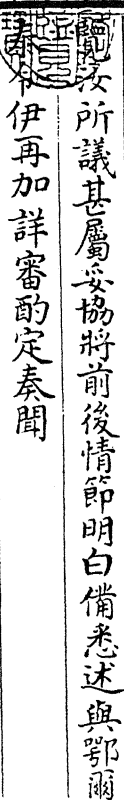 覽汝所議甚屬妥協將前後情節明白備悉述與鄂爾
泰令伊再加詳審酌定奏聞